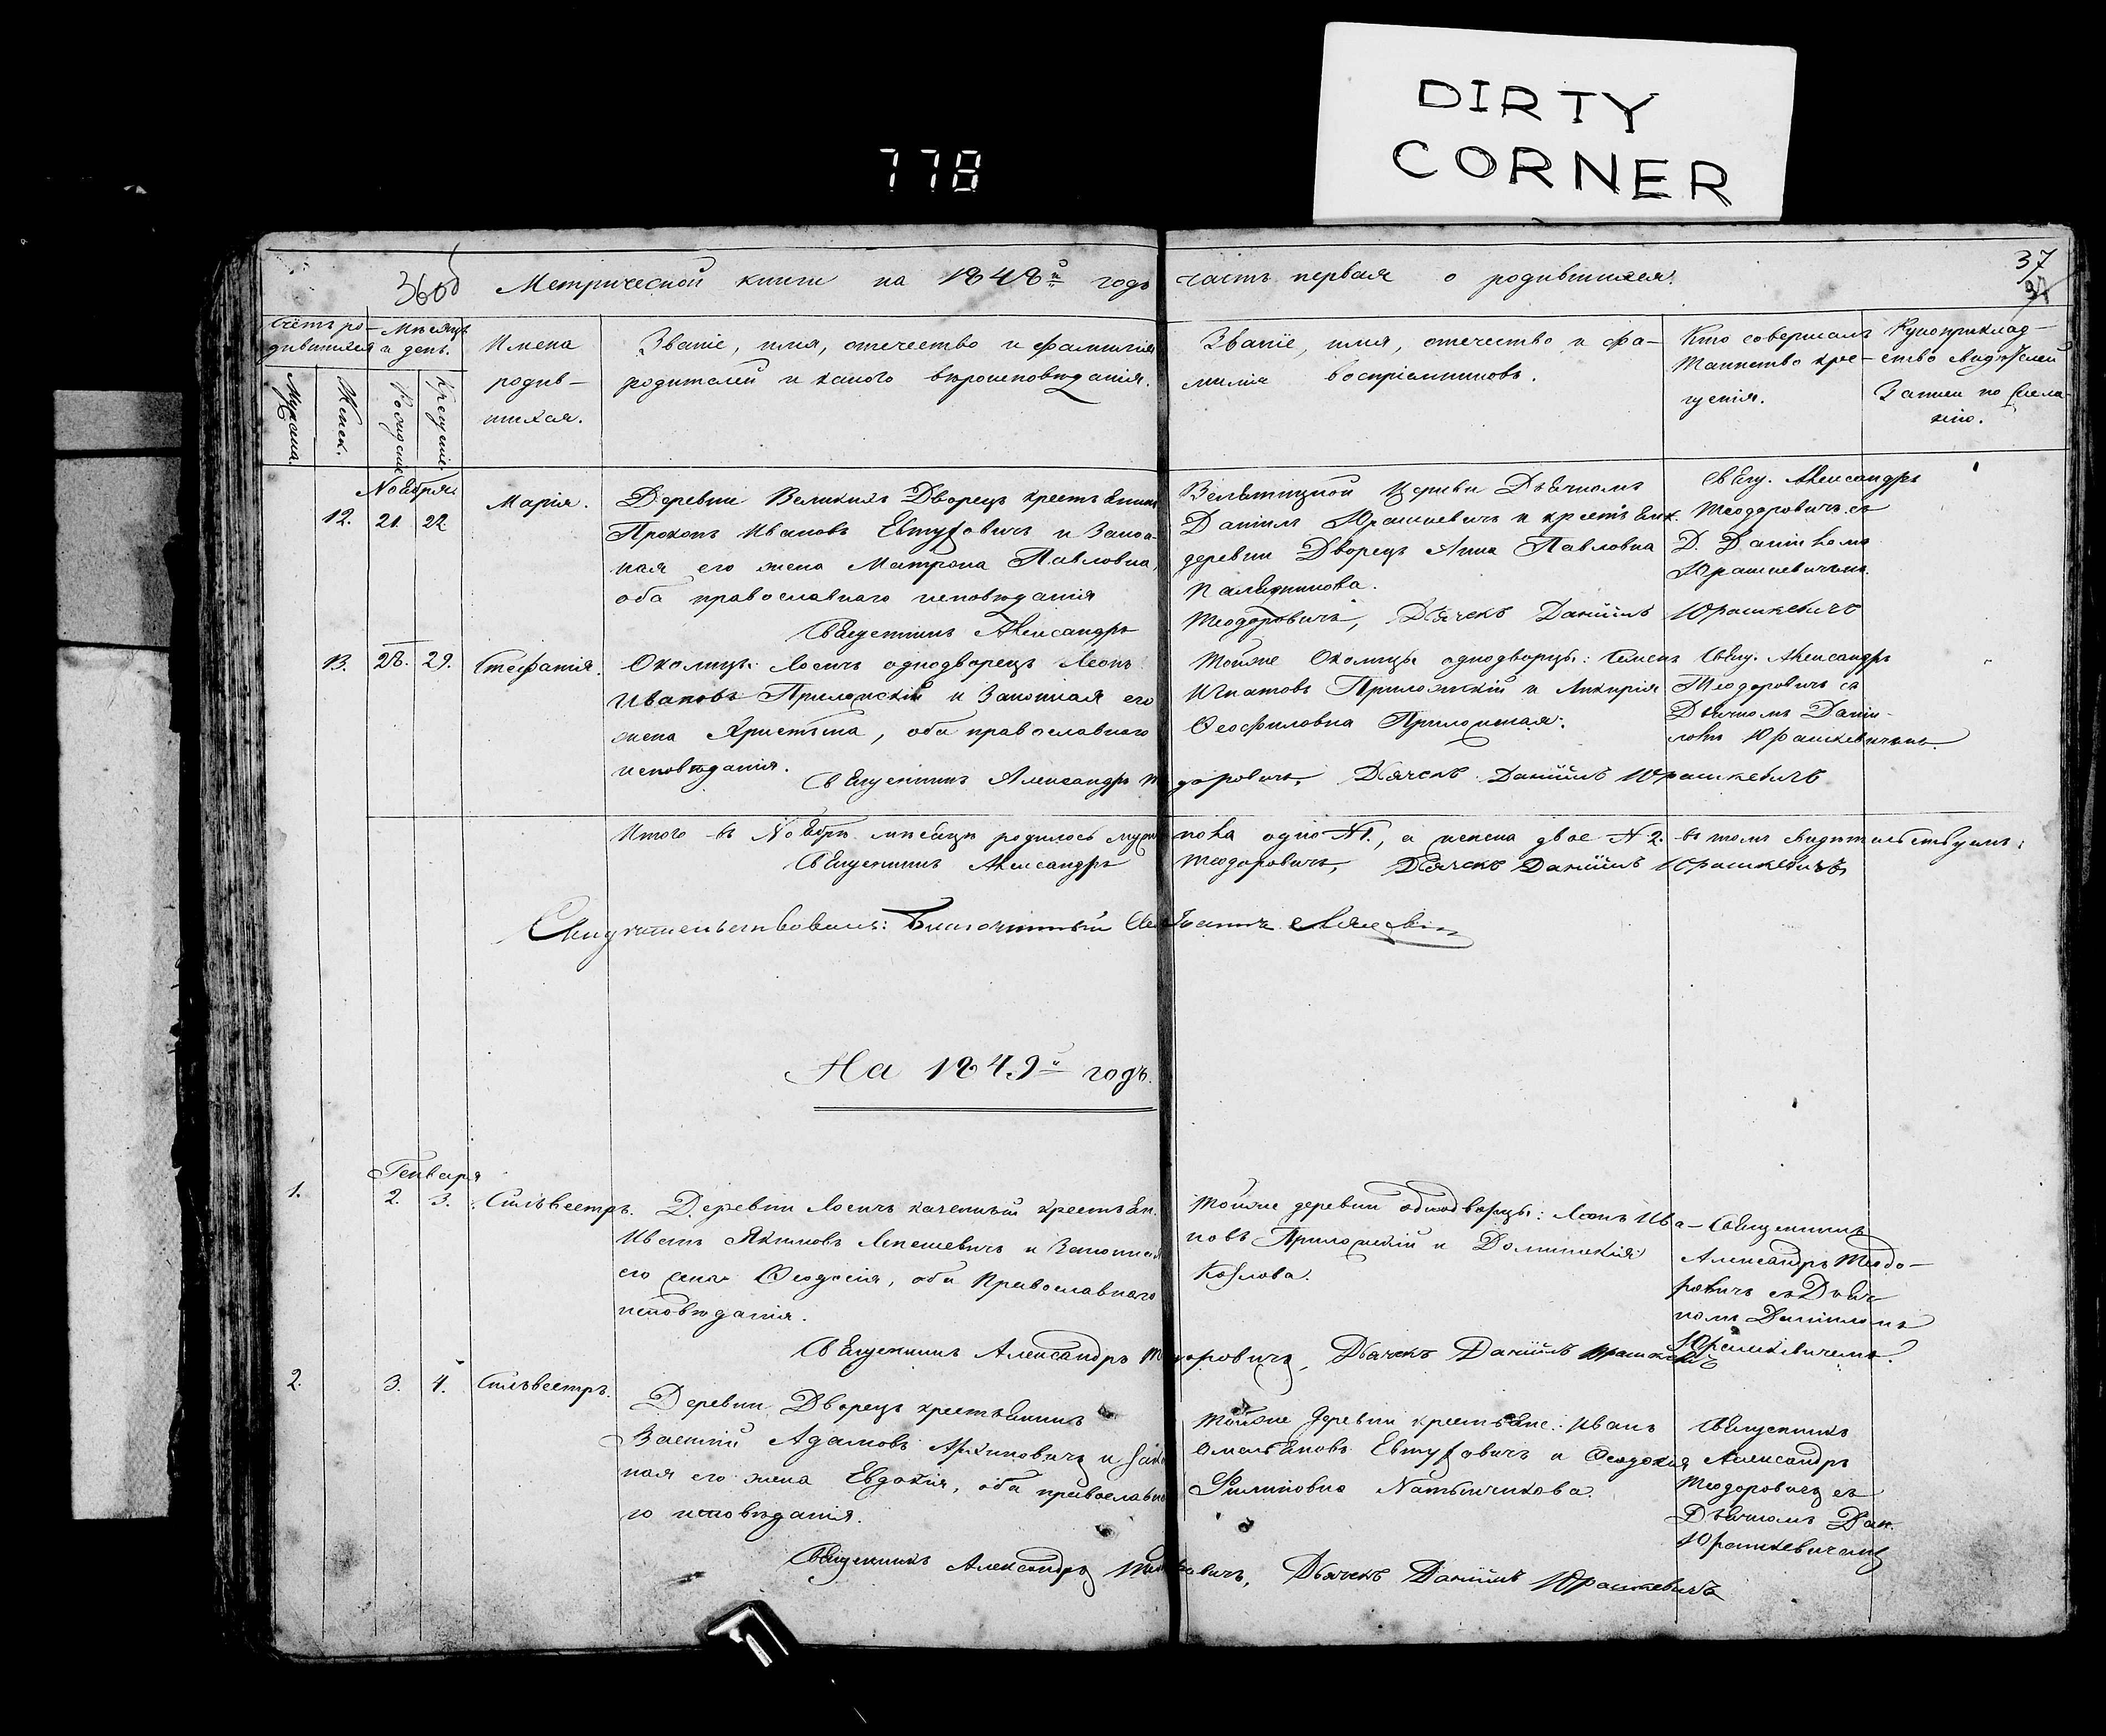 DIRTY
CORNER
778
36об
Метрической книги на 1848й годъ часть первая о родившихся.
37
Счётъ ро-
дившихся
Мѣсяцъ
и день.
Мужеска.
Женск.
Рожденіе
Крещеніе.
Имена
родив-
шихся.
Званіе, имя, отечество и фамилія
родителей и какого вѣроисповѣданія.
Званіе, имя, отечество и фа-
милія воспріемниковъ.
Кто совершалъ
таинство кре-
щенія.
Рукоприклад-
ство свидѣтелей
записи по жела-
нію.
Ноября
12. 21. 22
Марія.
Деревни Великихъ Дворецъ крестьянинъ
Прокопъ Ивановъ Евтуховичъ и закон-
ная его жена Матрона Павловна,
оба православнаго исповѣданія
церкви Дьячкомъ
Данiилъ Юрашкевичъ и крестьянк.
деревни Дворецъ Анна Павловна
Свящ. Александръ
Теодоровичъ съ
Д. Даніиломъ
Юрашкевичемъ.
Священникъ Александръ Теодоровичъ, Дьячекъ Даніилъ Юрашкевичъ
13. 28. 29. Стефанія.
Околицы Лосичъ однодворецъ Леонъ
Ивановъ Приложскій и законная его
жена Христина, оба православнаго
исповѣданія.
Тойже Околицы однодворцы: Семенъ
Игнатовъ Приложскій и
Ѳеофиловна Приложская.
Свящ. Александръ
Теодоровичъ съ
Дьячкомъ Даніи-
ломъ Юрашкевичемъ.
Священникъ Александръ Теодоровичъ, Дьячекъ Даніилъ Юрашкевичъ
Итого въ Ноябрѣ мѣсяцѣ родилось мужеска пола одно N 1., а женска двое N 2. въ томъ свидѣтельствуемъ:
Священникъ Александръ Теодоровичъ, Дьячекъ Даніилъ Юрашкевичъ
Свидѣтельствовалъ: Благочинный Іоаннъ
На 1849й годъ.
Генваря
1. 2. 3. Сильвестръ.
Деревни Лосичъ казенный крестьян.
Иванъ Якимовъ Лемешевичъ и законная
его жена Ѳеодосія, оба Православнаго
исповѣданія.
Тойже деревни однодворцы: Леонъ Ива-
новъ Приложскій и Доминикія
Козлова.
Священникъ
Александръ Теодо-
ровичъ съ Дьяч-
комъ Даніиломъ
Юрашкевичемъ.
Священникъ Александръ Теодоровичъ, Дьячекъ Даніилъ Юрашкевичъ
2. 3. 4. Сильвестръ.
Деревни Дворецъ крестьянинъ
Василій Адамовъ Архиповичъ и закон-
ная его жена Евдокія, оба православна-
го исповѣданія.
Тойже деревни крестьяне: Иванъ
Омельяновъ Евтуховичъ и Ѳеодосія
Филиповна
Священникъ
Александръ
Теодоровичъ съ
Дьячкомъ Дан.
Юрашкевичемъ
Священникъ Александръ Теодоровичъ, Дьячекъ Даніилъ Юрашкевичъ